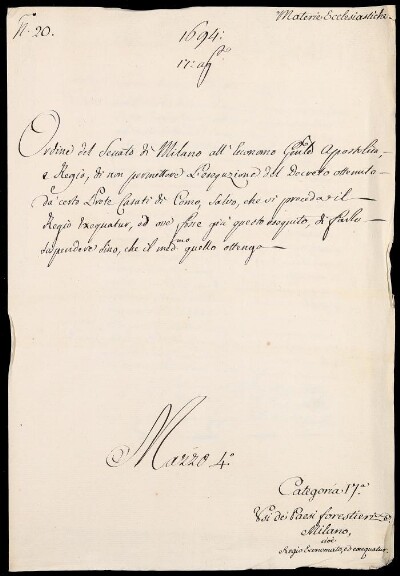 N. 20.
Materie Ecclesiastiche.
1694:
17: ag.to
Ordine del Senato di Milano all' Economo Gen.le Apostolico,
e Regio, di non permettere l'esequzione del Decreto ottenuto
da certo Prete Casati di Como, salvo, che vi preceda il
Regio Exequatur, ed ove fosse già questo eseguito, di farlo
suspendere sino, che il med.mo quello ottenga
Mazzo 4.o
Categoria 17.a
Usi dei Paesi forestieri
Milano,
cioè
Regio Economato, ed exequatur.